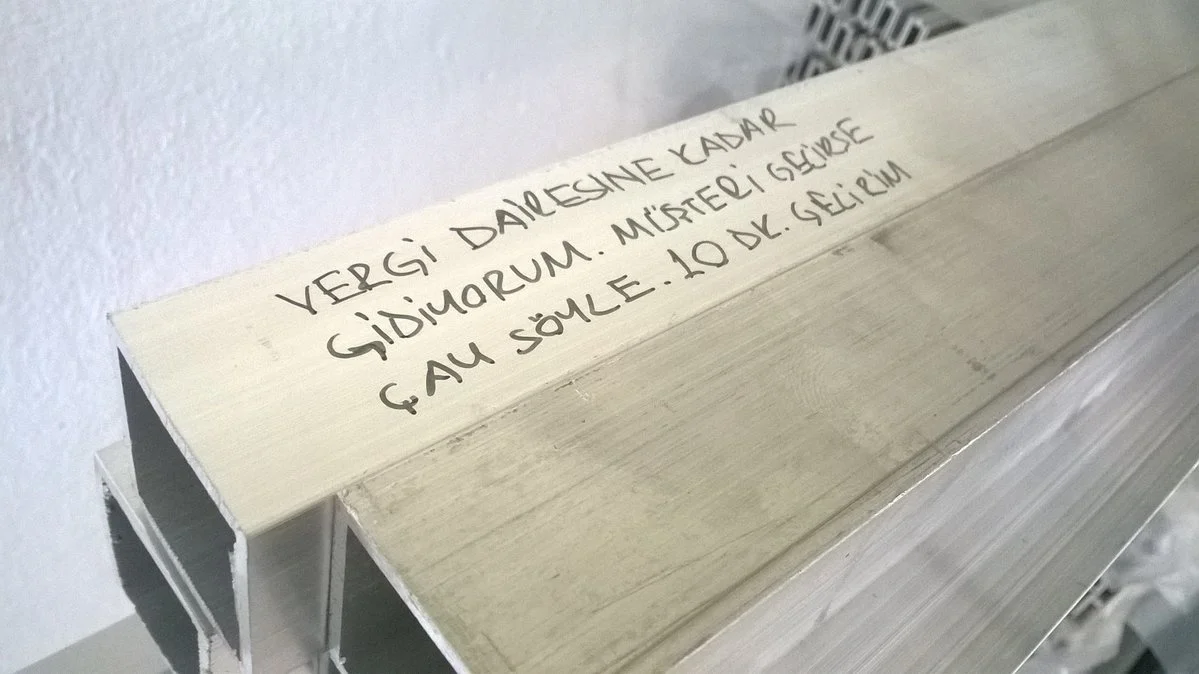 VERGİ DAİRESİNE KADAR
GİDİYORUM. MÜŞTERİ GELİRSE
ÇAY SÖYLE. 10 DK. GELİRİM